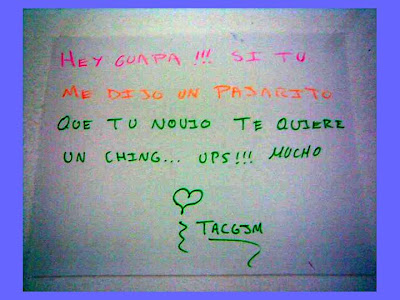 HEY GUAPA !!! SI TU
ME DIJO UN PAJARITO
QUE TU NOVIO TE QUIERE
UN CHING... UPS!!! MUCHO
TACGJM